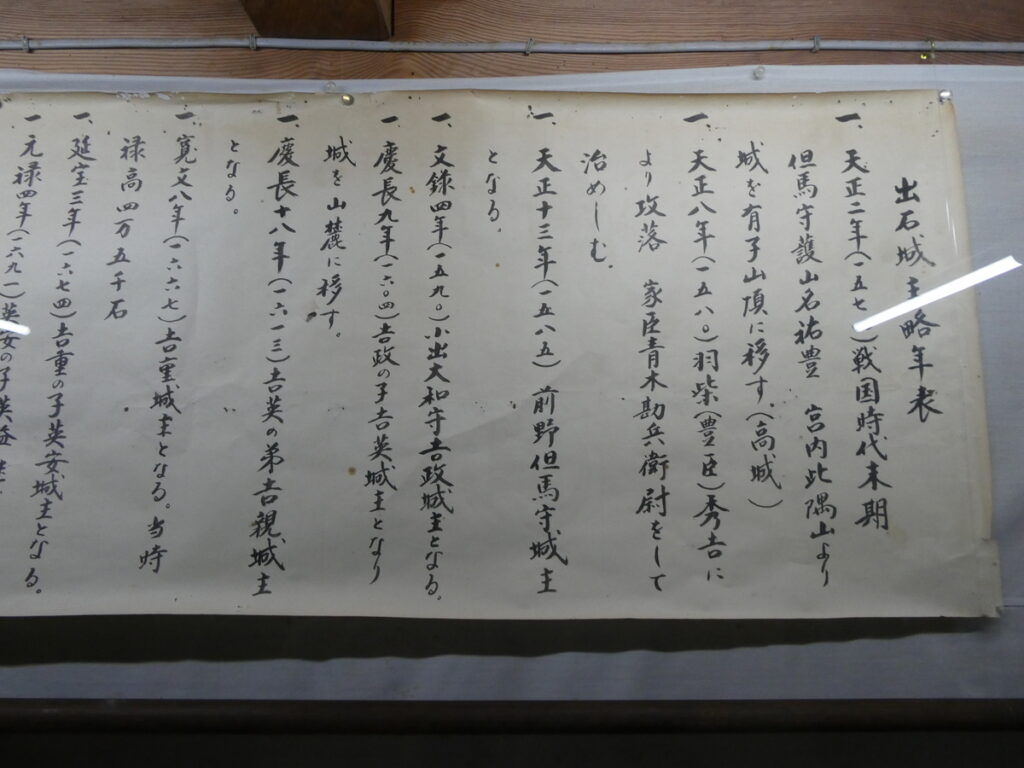 出石城主略年表
一、天正二年(一五七 )戦国時代末期
但馬守護山名祐豊 宮内此隅山より
城を有子山頂に移す。(高城)
一、天正八年(一五八〇)羽柴(豊臣)秀吉に
より攻落 家臣青木勘兵衛尉をして
治めしむ。
一、天正十三年(一五八五) 前野但馬守城主
となる。
一、文録四年(一五九〇)小出大和守吉政城主となる。
一、慶長九年(一六〇四)吉政の子吉英城主となり
城を山麓に移す。
一、慶長十八年(一六一三)吉英の弟吉親城主
となる。
一、寛文八年(一六六七)吉重城主となる。当時
禄高四万五千石
一、延宝三年(一六七四)吉重の子英安城主となる。
一、元禄四年(一六九一)英安の子英